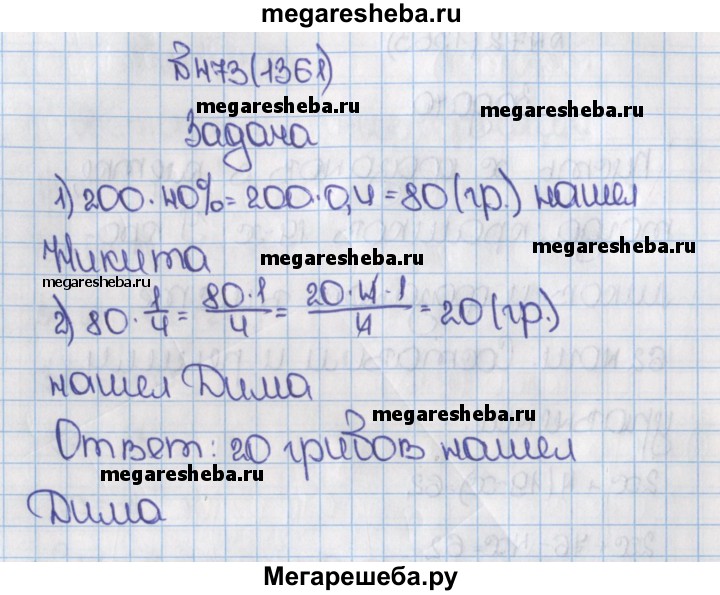 megaresheba.ru
№473(1361)
megaresheba.ru
megaresheba.ru
Задача
1) 200·40%=200·0,4=80(гр.) нашел
megaresheba.ru
megaresheba.ru
Никита
megaresheba.ru
2) 80·1/4=80·1/4=20·4·1/4=20(гр.)
нашел Дима
megaresheba.ru
Ответ: 20 грибов нашел
megaresheba.ru
Дима
Мегарешеба.ру